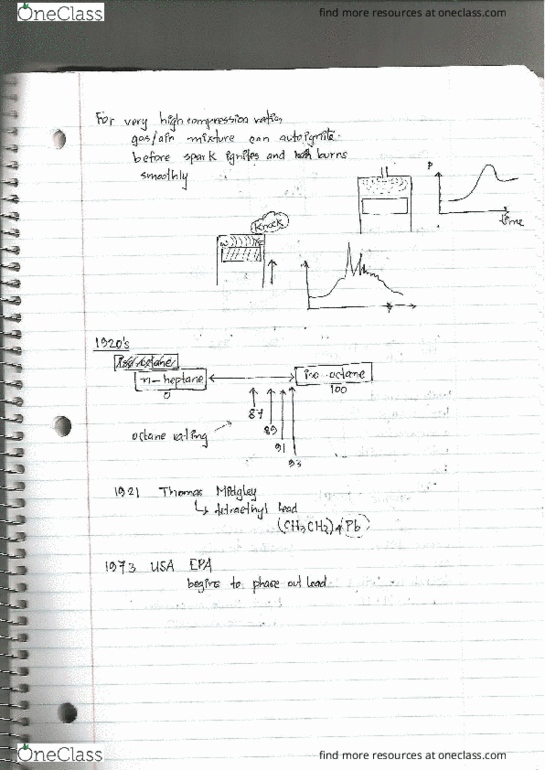 OneClass
find more resources at oneclass.com
For very high compression ratios,
gas/air mixture can autoignite
before spark ignites and burns
smoothly
P
time
Knock
1920's
Iso-octane
n-heptane
iso octane
0
100
87
89
91
93
octane rating
1921 Thomas Midgley
↳ tetraethyl lead
(CH3CH2)4Pb
1973 USA EPA
begins to phase out lead
OneClass
find more resources at oneclass.com